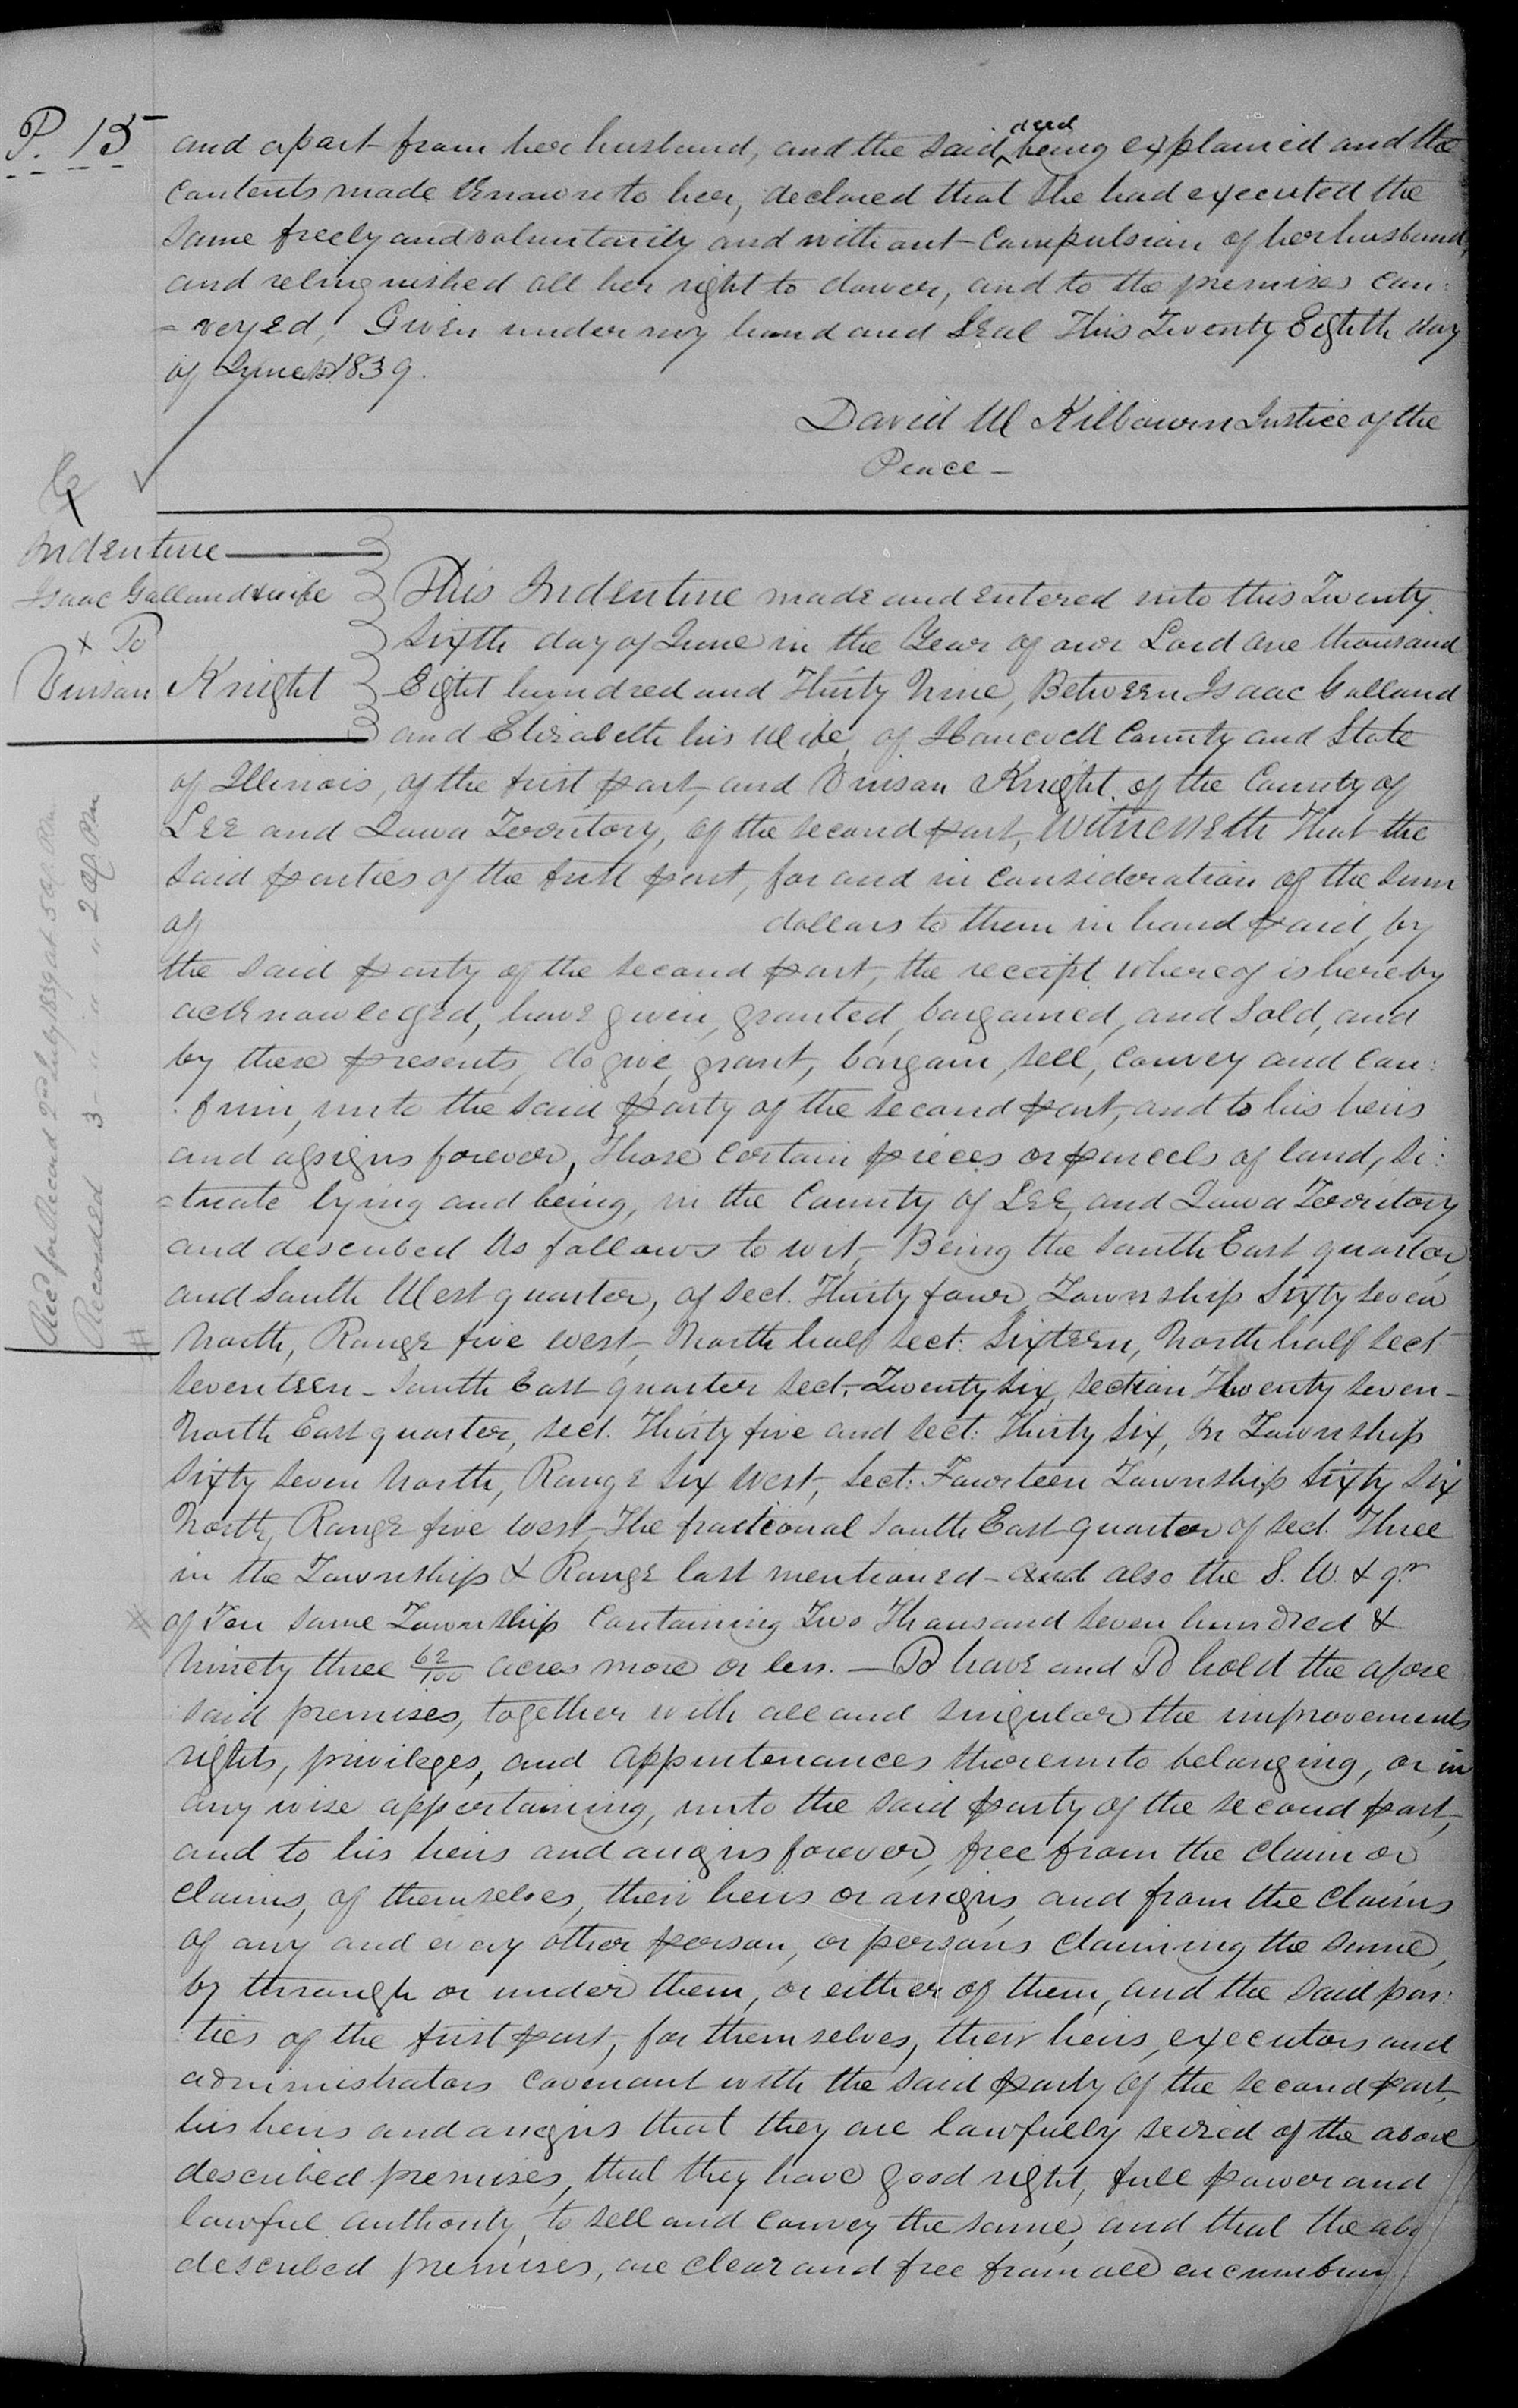 P. 15
and apart from her husband, and the said deed being explained and the
contents made known to her, declared that she had executed the
same freely and voluntarily and without compulsion of her husband,
and relinquished all her right to dower, and to the premises con:
=veyed, Given under my hand and Seal This Twenty Eighth day
of June 1839.
David W Kilbourn Justice of the
Peace —
Indenture
Isaac Galland & wife
+ To
Vinson Knight
This Indenture made and entered into this Twenty
sixth day of June in the Year of our Lord one thousand
Eight hundred and Thirty Nine, Between Isaac Galland
and Elizabeth his Wife, of Hancock County and State
of Illinois, of the first part, and Vinson Knight, of the County of
Lee and Iowa Territory, of the second part, Witnesseth That the
said parties of the first part, for and in consideration of the sum
of dollars to them in hand paid, by
the said party of the second part, the receipt whereof is hereby
acknowledged, have given, granted, bargained, and sold, and
by these presents, do give, grant, bargain, sell, convey and con:
:firm, unto the said party of the second part, and to his heirs
and assigns forever, Those certain pieces or parcels of land, si:
=tuate lying and being, in the County of Lee, and Iowa Territory
and described As follows to wit, Being the South East quarter,
and South West quarter, of Sect. Thirty four, Township Sixty seven
North, Range five west, North half Sect: Sixteen, North half Sect
seventeen — South East quarter Sect. Twenty Six, Section Twenty seven —
North East quarter, Sect. Thirty five and Sect: Thirty Six, In Township
Sixty seven North, Range Six West, Sect: Fourteen Township Sixty Six
North, Range five West, The fractional South East quarter of Sect. Three
in the Township & Range last mentioned — and also the S. W. & qr
of Ten same Township Containing Two Thousand seven hundred &
Ninety three 62/100 acres more or less. — To have and To hold the afore
said premises, together with all and singular the improvements
rights, privileges, and appurtenances thereunto belonging, or in
any wise appertaining, unto the said party of the second part,
and to his heirs and assigns forever, free from the claim or
claims, of themselves, their heirs or assigns, and from the claims
of any and every other person, or persons claiming the same,
by through or under them, or either of them, and the said par:
:ties of the first part, for themselves, their heirs, executors and
administrators covenant with the said party of the second part,
his heirs and assigns that they are lawfully seized of the above
described premises, that they have good right, full power and
lawful authority, to sell and convey the same, and that the abo
described premises, are clear and free from all encumbran
Recd for Record 2nd July 1839 at 5 O,c. P.m
Recorded 3 " " " 2 O,c. P.m
#
#